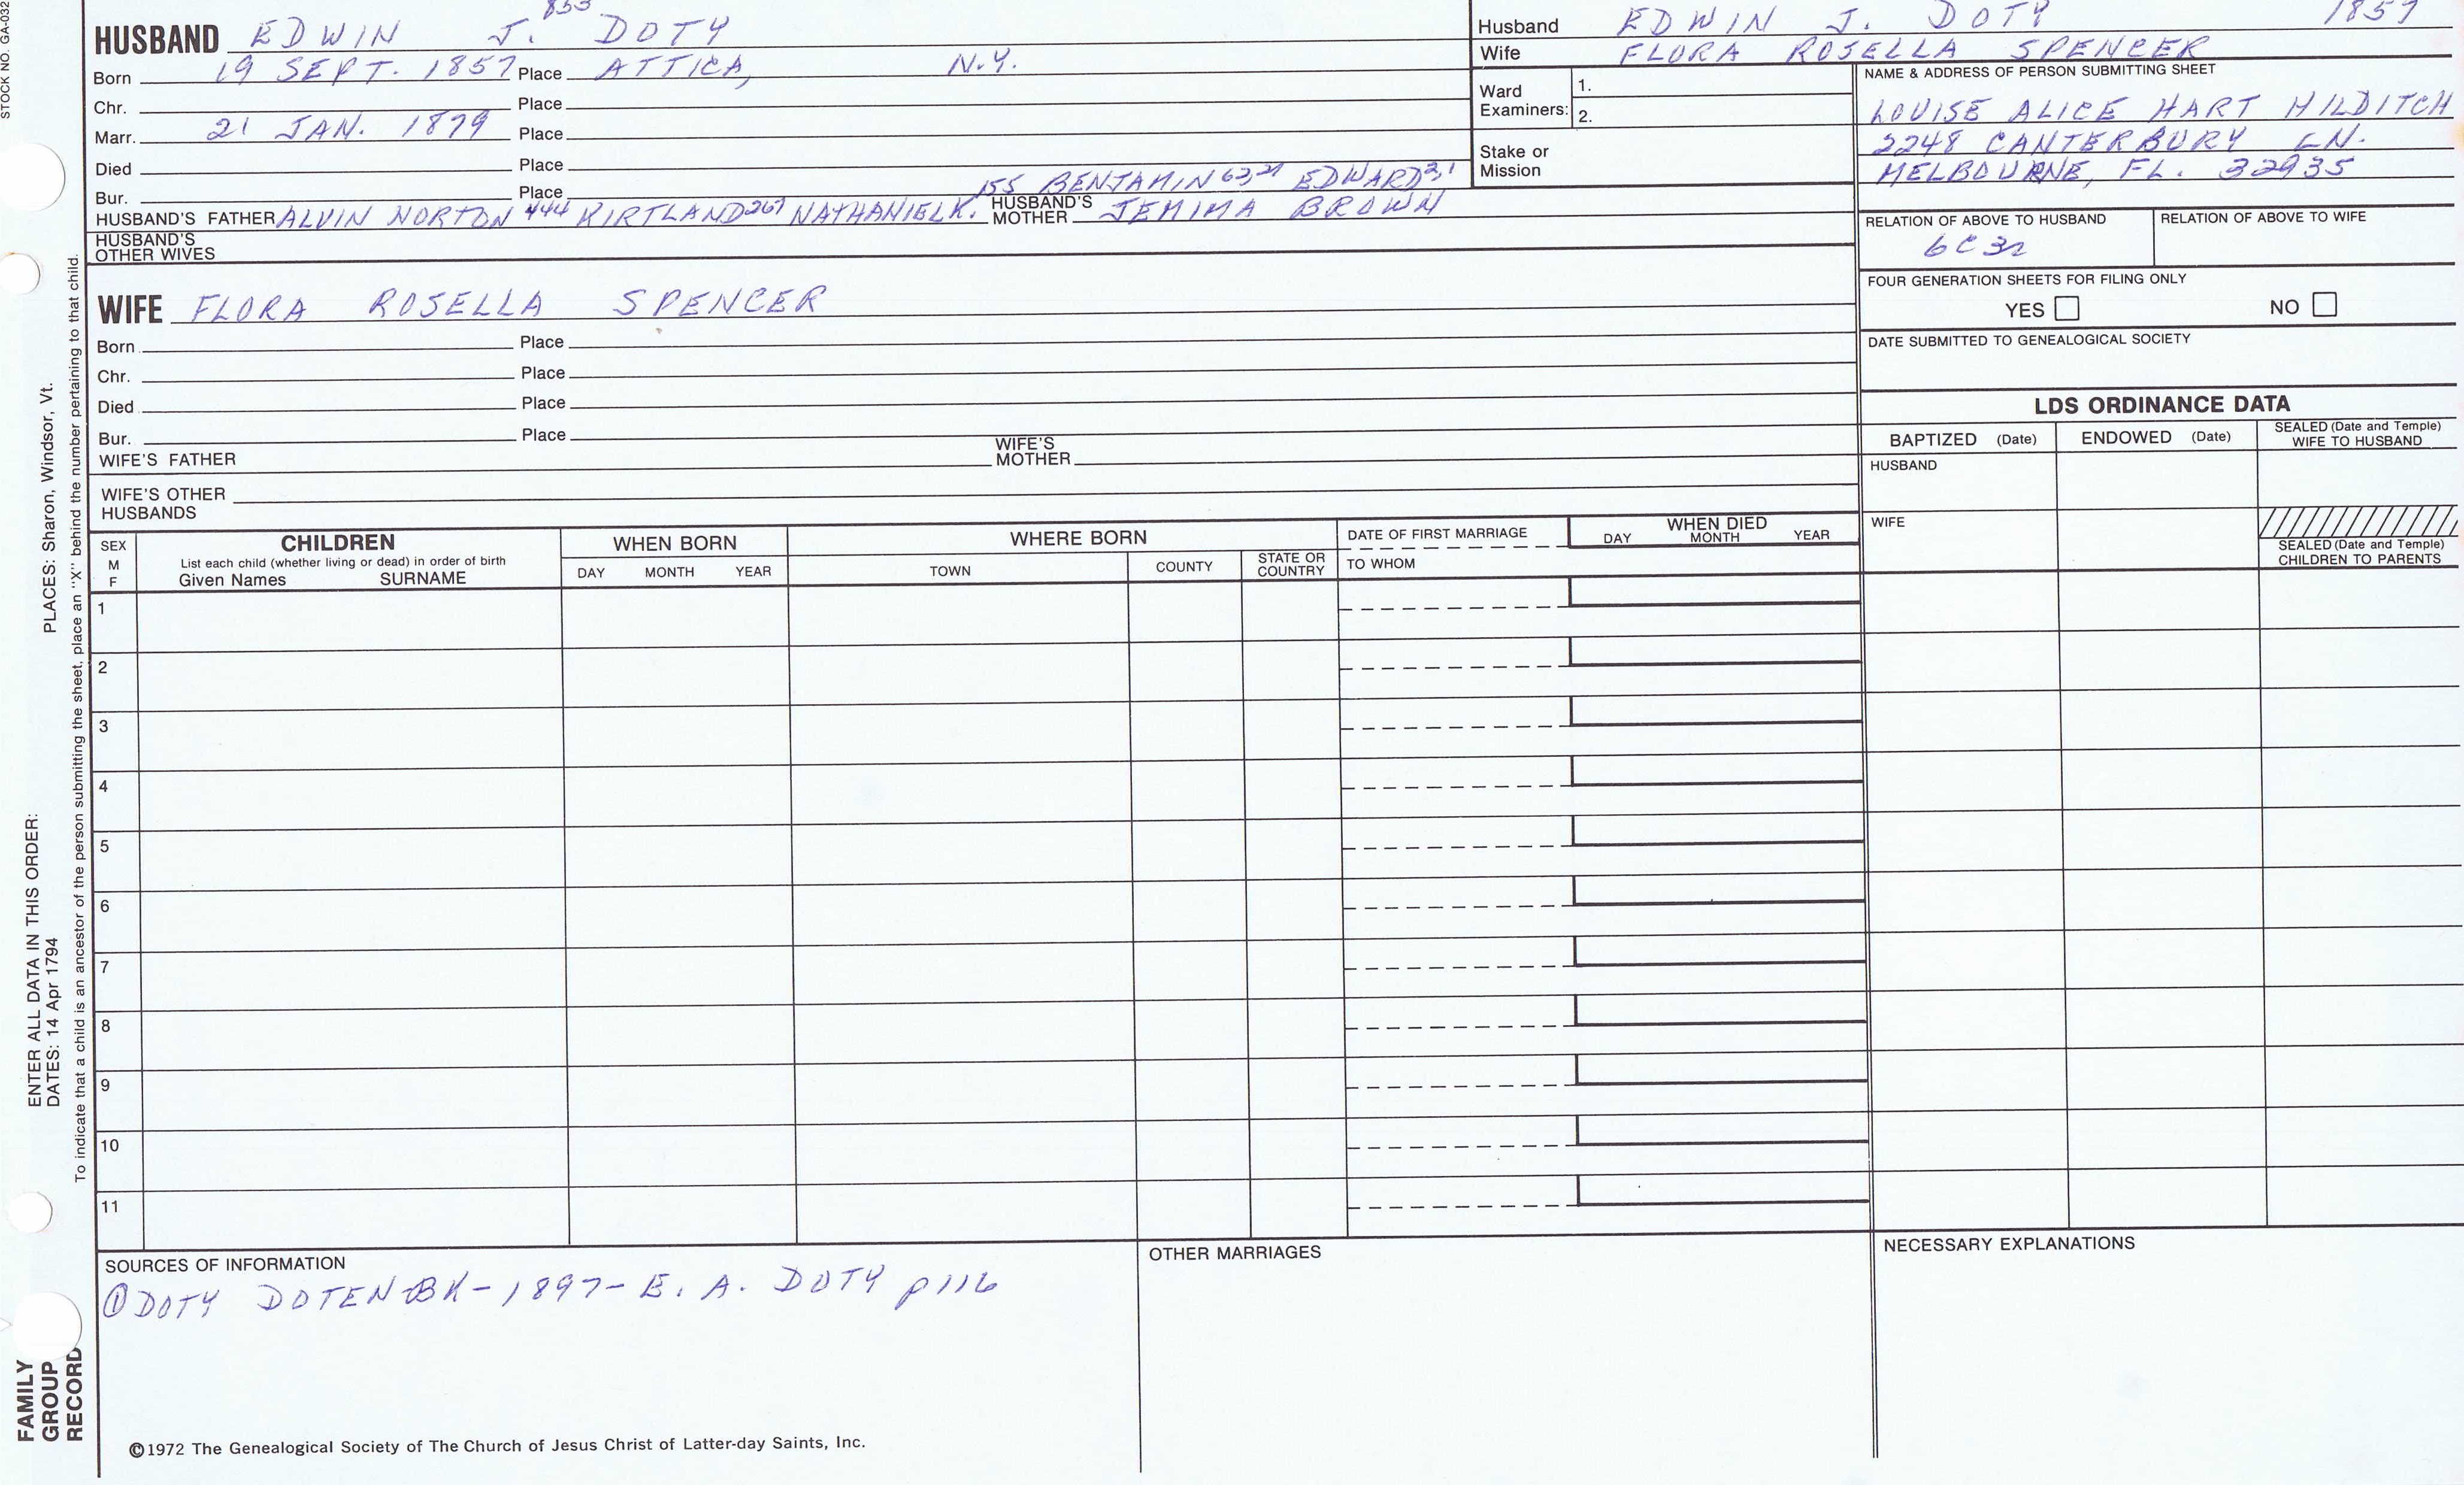 STOCK NO. GA-032
HUSBAND EDWIN J. 853 DOTY
Born 19 SEPT. 1857 Place ATTICA, N.Y.
Chr. Place
Marr. 21 JAN. 1879 Place
Died Place
Bur. Place 155 BENJAMIN 62,21 EDWARD 2,1
HUSBAND'S FATHER ALVIN NORTON 444 KIRTLAND 267 NATHANIEL K. HUSBAND'S MOTHER JEMIMA BROWN
HUSBAND'S OTHER WIVES
WIFE FLORA ROSELLA SPENCER
Born Place
Chr. Place
Died Place
Bur. Place
WIFE'S FATHER WIFE'S MOTHER
WIFE'S OTHER HUSBANDS
Husband EDWIN J. DOTY 1857
Wife FLORA ROSELLA SPENCER
Ward Examiners: 1.
2.
Stake or Mission
NAME & ADDRESS OF PERSON SUBMITTING SHEET
LOUISE ALICE HART HILDITCH
2248 CANTERBURY LN.
MELBOURNE, FL. 32935
RELATION OF ABOVE TO HUSBAND RELATION OF ABOVE TO WIFE
6C3R
FOUR GENERATION SHEETS FOR FILING ONLY
YES NO
DATE SUBMITTED TO GENEALOGICAL SOCIETY
LDS ORDINANCE DATA
BAPTIZED (Date) ENDOWED (Date) SEALED (Date and Temple) WIFE TO HUSBAND
HUSBAND
WIFE
SEALED (Date and Temple) CHILDREN TO PARENTS
SEX M F
CHILDREN
List each child (whether living or dead) in order of birth
Given Names SURNAME
WHEN BORN
DAY MONTH YEAR
WHERE BORN
TOWN COUNTY STATE OR COUNTRY
DATE OF FIRST MARRIAGE
TO WHOM
WHEN DIED
DAY MONTH YEAR
1
2
3
4
5
6
7
8
9
10
11
SOURCES OF INFORMATION
① DOTY DOTEN BK - 1897 - E. A. DOTY p116
OTHER MARRIAGES
NECESSARY EXPLANATIONS
©1972 The Genealogical Society of The Church of Jesus Christ of Latter-day Saints, Inc.
ENTER ALL DATA IN THIS ORDER:
DATES: 14 Apr 1794 PLACES: Sharon, Windsor, Vt.
To indicate that a child is an ancestor of the person submitting the sheet, place an "X" behind the number pertaining to that child.
FAMILY
GROUP
RECORD